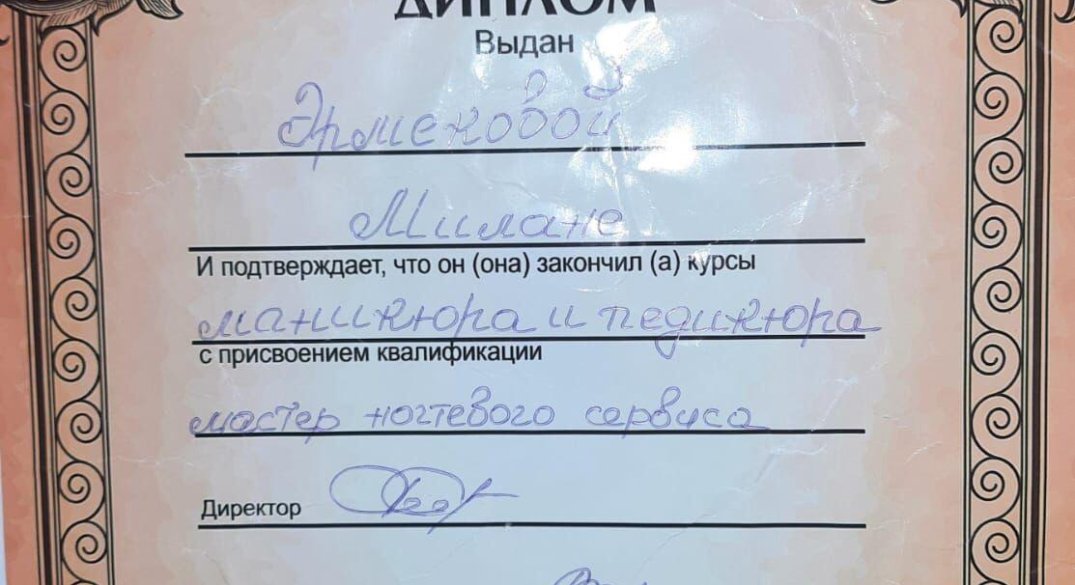 ДИПЛОМ
Выдан
Эрмековой
Милане
И подтверждает, что он (она) закончил (а) курсы
маникюра и педикюра
с присвоением квалификации
мастер ногтевого сервиса
Директор